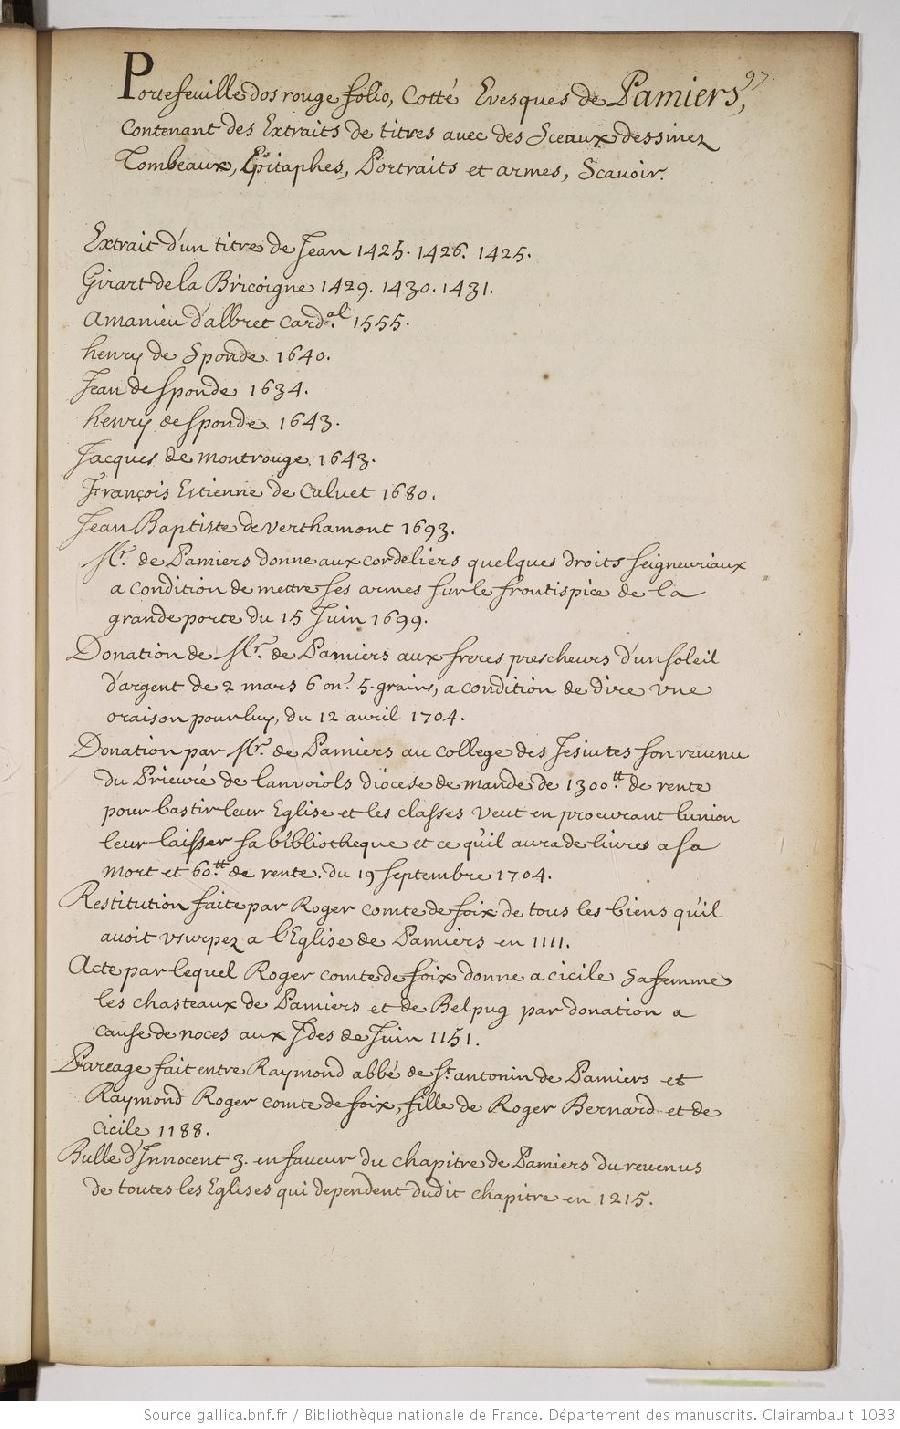 97
Portefeuille dos rouge folio, Cotté Evesques de Pamiers,
Contenant des Extraits de titres avec des Sceaux dessinez
Tombeaux, Epitaphes, Portraits et armes, Scavoir.
Extrait d'un titre de Jean 1425. 1426. 1425.
Girart de la Bricoigne 1429. 1430. 1431.
Amanieu d'albret Card.al 1555.
henry de Sponde 1640.
Jean de Sponde 1634.
henry de Sponde 1643.
Jacques de montrouge 1643.
François Estienne de Caluet 1680.
Jean Baptiste de verthamont 1693.
Mr. de Pamiers donne aux cordeliers quelques droits seigneuriaux
a condition de mettre ses armes sur le frontispice de la
grande porte du 15 Juin 1699.
Donation de Mr. de Pamiers aux freres prescheurs d'un soleil
d'argent de 2 mars 6 on. 5. grains, a condition de dire vne
oraison pour luy, du 12 avril 1704.
Donation par Mr. de Pamiers au college des Jesuites son revenu
du Prieuré de lanvoiols diocese de mande de 1300tt. de rente
pour bastir leur Eglise et les classes veut en procurant lunion
leur laisser sa bibliotheque et ce qu'il aura de livres a sa
mort et 60.tt de rente. du 19 septembre 1704.
Restitution faite par Roger comte de foix de tous les biens qu'il
avoit vsurpez a l'Eglise de Pamiers en 1111.
Acte par lequel Roger comte de foix donne a cicile sa femme
les chasteaux de Pamiers et de Belpug par donation a
cause de noces aux Jdes de Juin 1151.
Pareage fait entre Raymond abbé de St. antonin de Pamiers et
Raymond Roger comte de foix, fille de Roger Bernard et de
Cicile 1188.
Bulle d'Innocent 3. en faveur du chapitre de Pamiers du revenus
de toutes les Eglises qui dependent dudit chapitre en 1215.
Source gallica.bnf.fr / Bibliothèque nationale de France. Département des manuscrits. Clairambault 1033